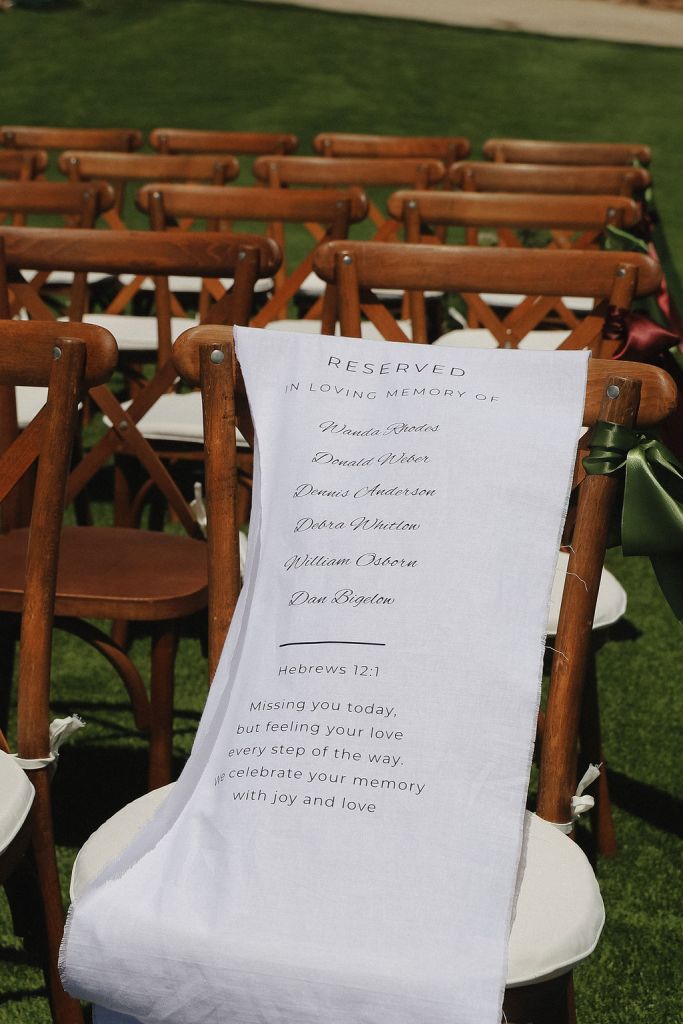 RESERVED
IN LOVING MEMORY OF
Wanda Rhodes
Donald Weber
Dennis Anderson
Debra Whitlow
William Osborn
Dan Bigelow
Hebrews 12:1
Missing you today,
but feeling your love
every step of the way.
We celebrate your memory
with joy and love